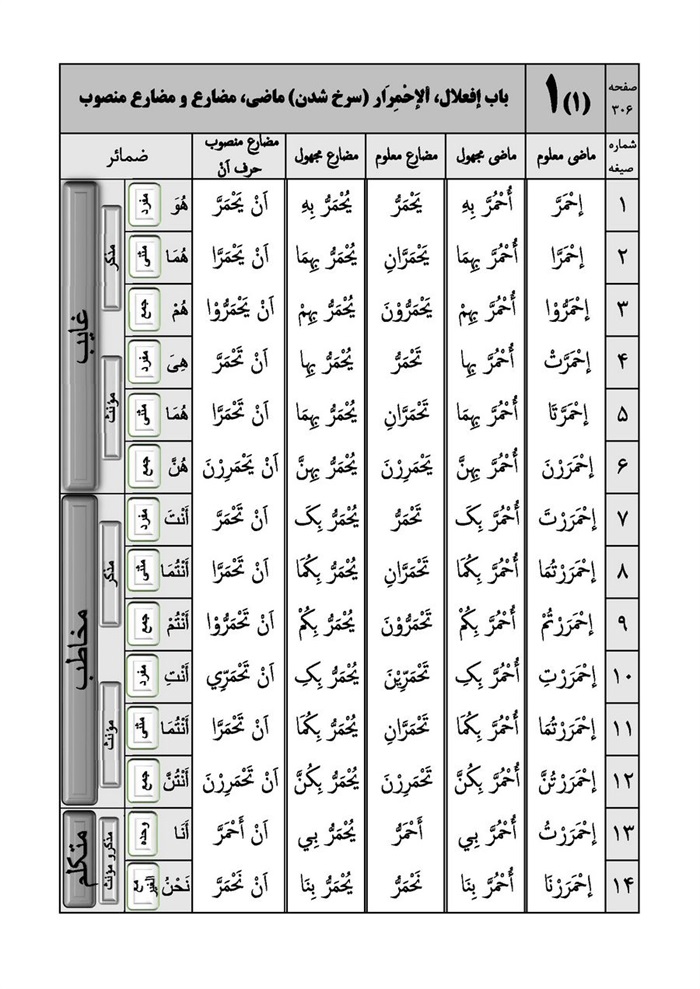 صفحه ۳۰۶ (۱) ۱ باب إفعلال، ألإحْمِرَار (سرخ شدن) ماضی، مضارع و مضارع منصوب
شماره صیغه ماضی معلوم ماضی مجهول مضارع معلوم مضارع مجهول مضارع منصوب حرف أنْ ضمائر
۱ إحْمَرَّ أُحْمُرَّ بِهِ يَحْمَرُّ يُحْمَرُّ بِهِ اَنْ يَحْمَرَّ هُوَ مفرد مذکر غایب
۲ إحْمَرَّا أُحْمُرَّ بِهِمَا يَحْمَرَّانِ يُحْمَرُّ بِهِمَا اَنْ يَحْمَرَّا هُمَا مثنی
۳ إحْمَرُّوْا أُحْمُرَّ بِهِمْ يَحْمَرُّوْنَ يُحْمَرُّ بِهِمْ اَنْ يَحْمَرُّوْا هُمْ جمع
۴ إحْمَرَّتْ أُحْمُرَّ بِها تَحْمَرُّ يُحْمَرُّ بِها اَنْ تَحْمَرَّ هِیَ مفرد مؤنث
۵ إحْمَرَّتَا أُحْمُرَّ بِهِمَا تَحْمَرَّانِ يُحْمَرُّ بِهِمَا اَنْ تَحْمَرَّا هُمَا مثنی
۶ إحْمَرَرْنَ أُحْمُرَّ بِهِنَّ يَحْمَرِرْنَ يُحْمَرُّ بِهِنَّ اَنْ يَحْمَرِرْنَ هُنَّ جمع
۷ إحْمَرَرْتَ أُحْمُرَّ بِکَ تَحْمَرُّ يُحْمَرُّ بِکَ اَنْ تَحْمَرَّ أنْتَ مفرد مذکر مخاطب
۸ إحْمَرَرْتُمَا أُحْمُرَّ بِكُمَا تَحْمَرَّانِ يُحْمَرُّ بِكُمَا اَنْ تَحْمَرَّا أنْتُمَا مثنی
۹ إحْمَرَرْتُمْ أُحْمُرَّ بِكُمْ تَحْمَرُّوْنَ يُحْمَرُّ بِكُمْ اَنْ تَحْمَرُّوْا أنْتُمْ جمع
۱۰ إحْمَرَرْتِ أُحْمُرَّ بِکِ تَحْمَرِّيْنَ يُحْمَرُّ بِکِ اَنْ تَحْمَرِّي أنْتِ مفرد مؤنث
۱۱ إحْمَرَرْتُمَا أُحْمُرَّ بِكُمَا تَحْمَرَّانِ يُحْمَرُّ بِكُمَا اَنْ تَحْمَرَّا أنْتُمَا مثنی
۱۲ إحْمَرَرْتُنَّ أُحْمُرَّ بِكُنَّ تَحْمَرِرْنَ يُحْمَرُّ بِكُنَّ اَنْ تَحْمَرِرْنَ أنْتُنَّ جمع
۱۳ إحْمَرَرْتُ أُحْمُرَّ بِي أحْمَرُّ يُحْمَرُّ بِي اَنْ أَحْمَرَّ أنَا وحده مذکر و مؤنث متکلم
۱۴ إحْمَرَرْنَا أُحْمُرَّ بِنَا نَحْمَرُّ يُحْمَرُّ بِنَا اَنْ نَحْمَرَّ نَحْنُ مع الغیر